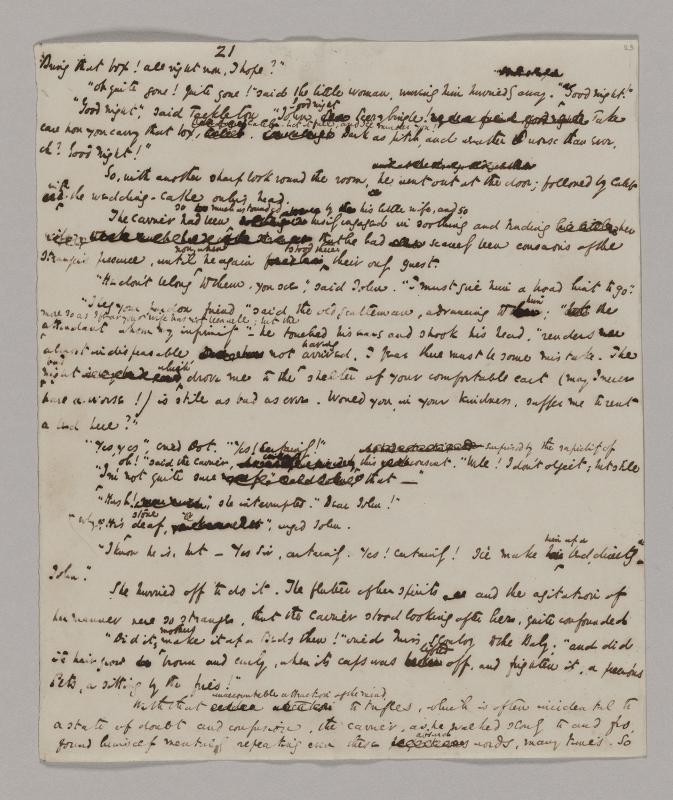 21
Bring that box! all right now, I hope?"
"Oh quite gone! Quite gone!" said the little woman, waving him hurriedly away. "Good night!"
"Good night," said Tackleton. "Good night John Peerybingle! Take
care how you carry that box, Caleb. Let it fall, and I'll murder you!
Dark as pitch and weather worse than ever,
eh? Good night!"
So, with another sharp look round the room, he went out at the door; followed by Caleb
with the wedding-cake on his head.
The Carrier had been so much astounded by his little wife, and so
busily engaged in soothing and tending her,
that he had scarcely been conscious of the
Stranger's presence, until now, when he again stood there, their only guest.
"He don't belong to them, you see," said John. "I must give him a hint to go."
"I beg your pardon friend," said the old gentleman, advancing to him; "the
more so as I fear your wife has not been well; but the
attendant whom my infirmity" he touched his ears and shook his head, "renders
almost indispensable not having arrived, I fear there must be some mistake. The
bad night which drove me to the shelter of your comfortable cart (may I never
have a worse!) is still as bad as ever. Would you, in your kindness, suffer me to rent
a bed here?"
"Yes yes", cried Dot. "Yes! Certainly!"
"Oh!" said the Carrier, surprised by the rapidity of
this consent. "Well! I don't object; but still
I'm not quite sure that —"
"Hush!" she interrupted. "Dear John!"
"Why, he's stone deaf", urged John.
"I know he is, but — Yes Sir, certainly. Yes! Certainly! I'll make him up a bed directly,
John."
She hurried off to do it. The flutter of her spirits and the agitation of
her manner were so strange, that the Carrier stood looking after her, quite confounded.
"Did its mothers make it up a Beds then!" cried Miss Slowboy to the Baby; "and did
its hair grow brown and curly, when its caps was lifted off, and frighten it, a precious
Pets, a sitting by the fires!"
With that unaccountable attraction of the mind to trifles, which is often incidental to
a state of doubt and confusion, the Carrier, as he walked slowly to and fro,
found himself mentally repeating even these absurd words, many times. So